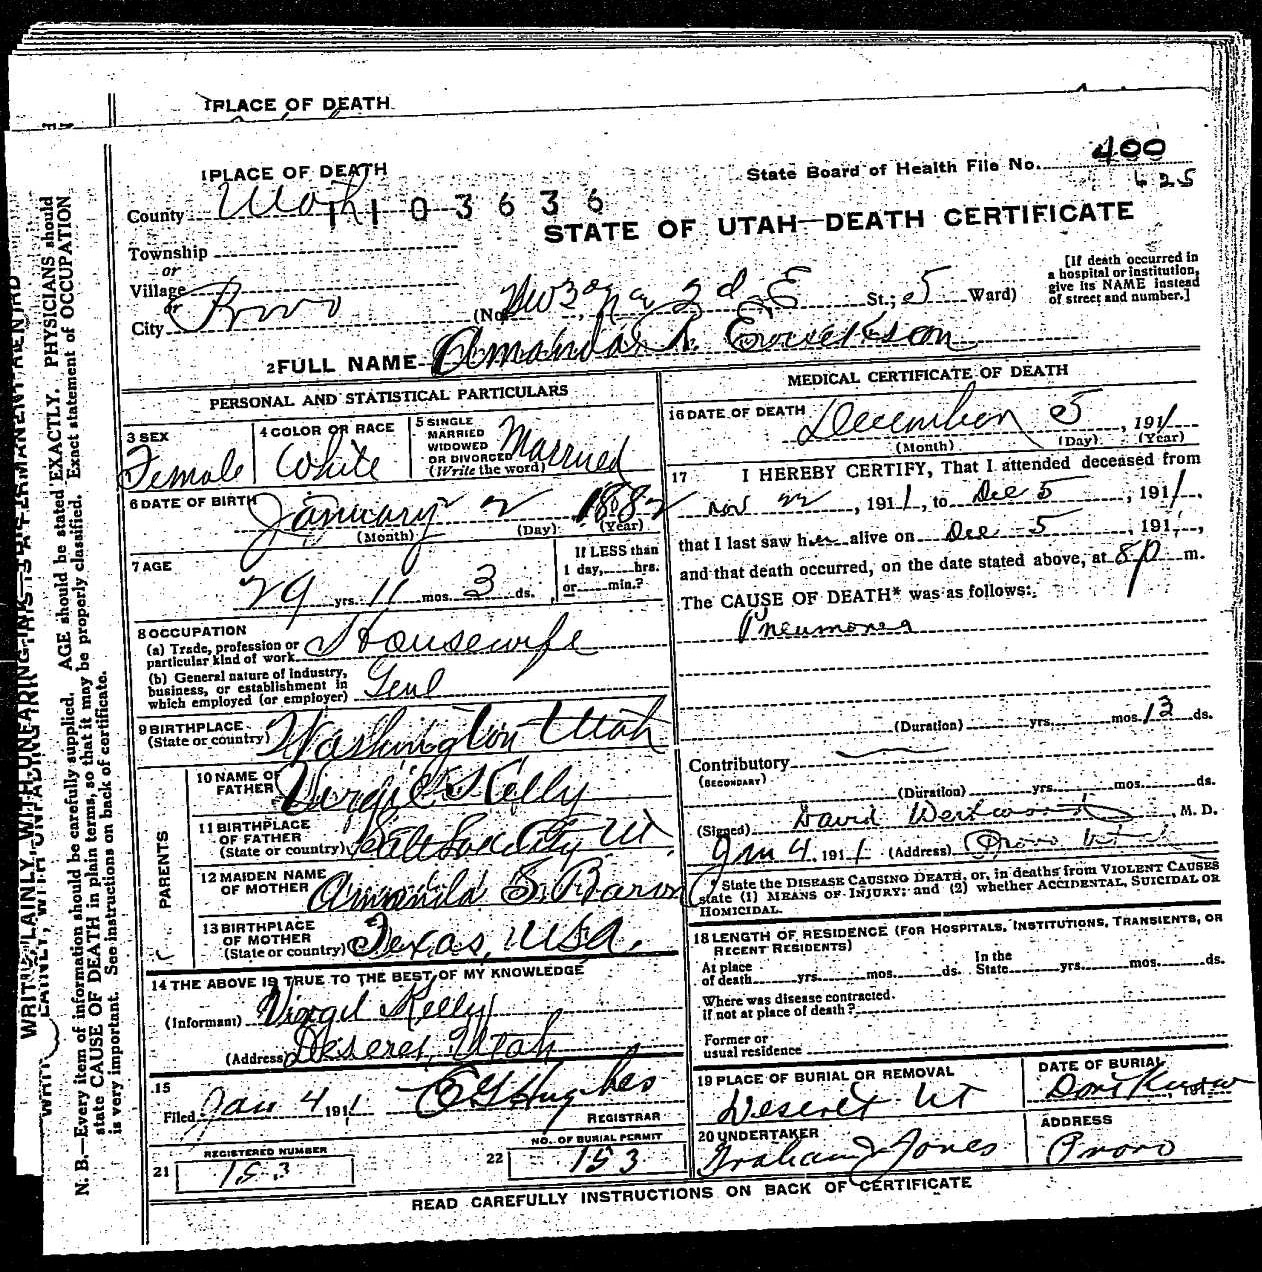 1 PLACE OF DEATH
1 PLACE OF DEATH
State Board of Health File No. 400
625
County Utah
1 1 0 3 6 3 6
STATE OF UTAH—DEATH CERTIFICATE
Township
or
Village
or
City Provo
(No. 3 2d E St.; 5 Ward)
[If death occurred in
a hospital or institution,
give its NAME instead
of street and number.]
2 FULL NAME Amanda R.
PERSONAL AND STATISTICAL PARTICULARS
3 SEX
Female
4 COLOR OR RACE
White
5 SINGLE
MARRIED
WIDOWED
OR DIVORCED
(Write the word)
Married
6 DATE OF BIRTH
January 2 1882
(Month) (Day) (Year)
7 AGE
29 yrs. 11 mos. 3 ds.
If LESS than
1 day, hrs.
or min.?
8 OCCUPATION
(a) Trade, profession or
particular kind of work Housewife
(b) General nature of industry,
business, or establishment in
which employed (or employer) Genl
9 BIRTHPLACE
(State or country) Washington Utah
PARENTS
10 NAME OF
FATHER Virgil Kelly
11 BIRTHPLACE
OF FATHER
(State or country) Salt Lake City Ut
12 MAIDEN NAME
OF MOTHER Amanda S. Baron
13 BIRTHPLACE
OF MOTHER
(State or country) Texas, USA.
14 THE ABOVE IS TRUE TO THE BEST OF MY KNOWLEDGE
(Informant) Virgil Kelly
(Address) Deseret, Utah
15
Filed Jan 4 1911 E G Hughes
REGISTRAR
21 REGISTERED NUMBER
153
22 NO. OF BURIAL PERMIT
153
MEDICAL CERTIFICATE OF DEATH
16 DATE OF DEATH
December 5, 1911
(Month) (Day) (Year)
17 I HEREBY CERTIFY, That I attended deceased from
Nov 22, 1911, to Dec 5, 1911,
that I last saw her alive on Dec 5, 191,
and that death occurred, on the date stated above, at 8 p m.
The CAUSE OF DEATH* was as follows:
Pneumonia
(Duration) yrs. mos. 13 ds.
Contributory
(SECONDARY)
(Duration) yrs. mos. ds.
(Signed) David Westwood, M. D.
Jan 4, 1911 (Address) Provo Ut
State the DISEASE CAUSING DEATH, or, in deaths from VIOLENT CAUSES
state (1) MEANS OF INJURY; and (2) whether ACCIDENTAL, SUICIDAL OR
HOMICIDAL.
18 LENGTH OF RESIDENCE (FOR HOSPITALS, INSTITUTIONS, TRANSIENTS, OR
RECENT RESIDENTS)
At place
of death yrs. mos. ds.
In the
State yrs. mos. ds.
Where was disease contracted.
if not at place of death?
Former or
usual residence
19 PLACE OF BURIAL OR REMOVAL
Deseret Ut
DATE OF BURIAL
Dont Know, 191
20 UNDERTAKER
Graham & Jones
ADDRESS
Provo
READ CAREFULLY INSTRUCTIONS ON BACK OF CERTIFICATE
N. B.—Every item of information should be carefully supplied. AGE should be stated EXACTLY. PHYSICIANS should
state CAUSE OF DEATH in plain terms, so that it may be properly classified. Exact statement of OCCUPATION
is very important. See instructions on back of certificate.